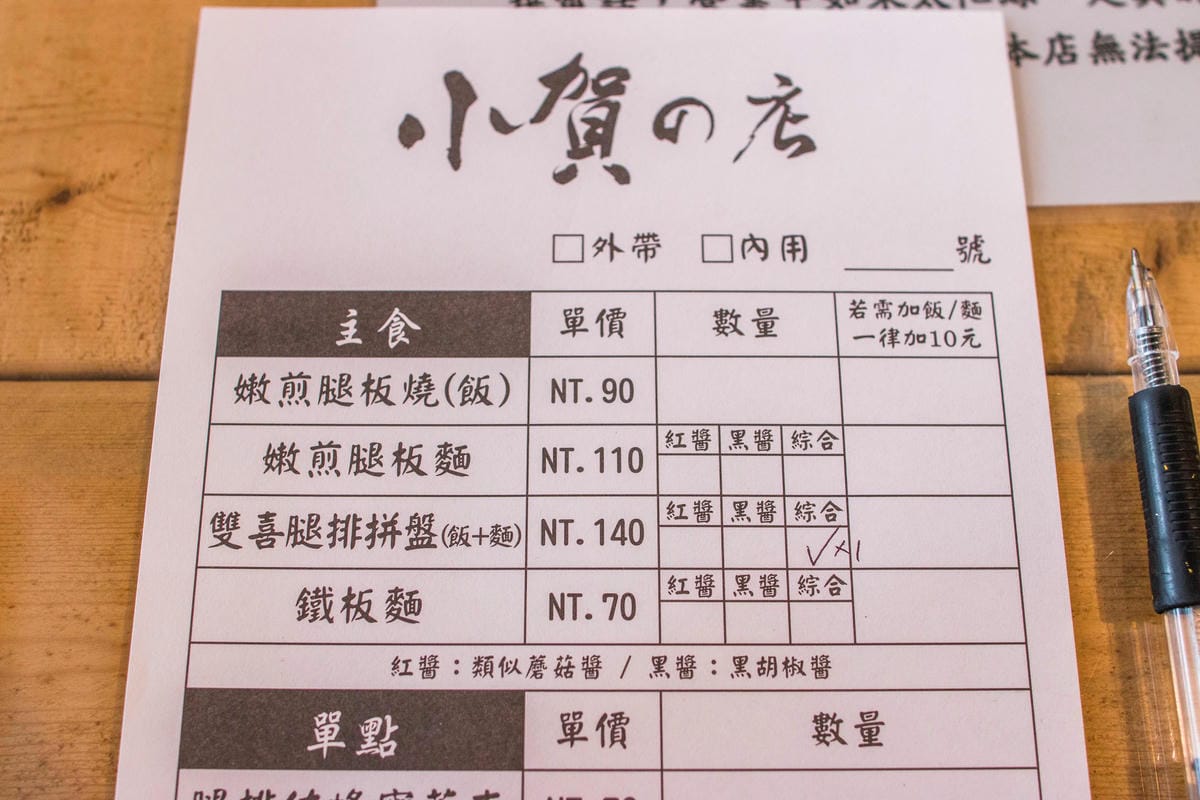 本店無法提
小賀の店
□外帶 □內用 ______號
主食 單價 數量 若需加飯/麵
一律加10元
嫩煎腿板燒(飯) NT.90
嫩煎腿板麵 NT.110 紅醬 黑醬 綜合
雙喜腿排拼盤(飯+麵) NT.140 紅醬 黑醬 綜合
✓x1
鐵板麵 NT.70 紅醬 黑醬 綜合
紅醬：類似蘑菇醬 / 黑醬：黑胡椒醬
單點 單價 數量